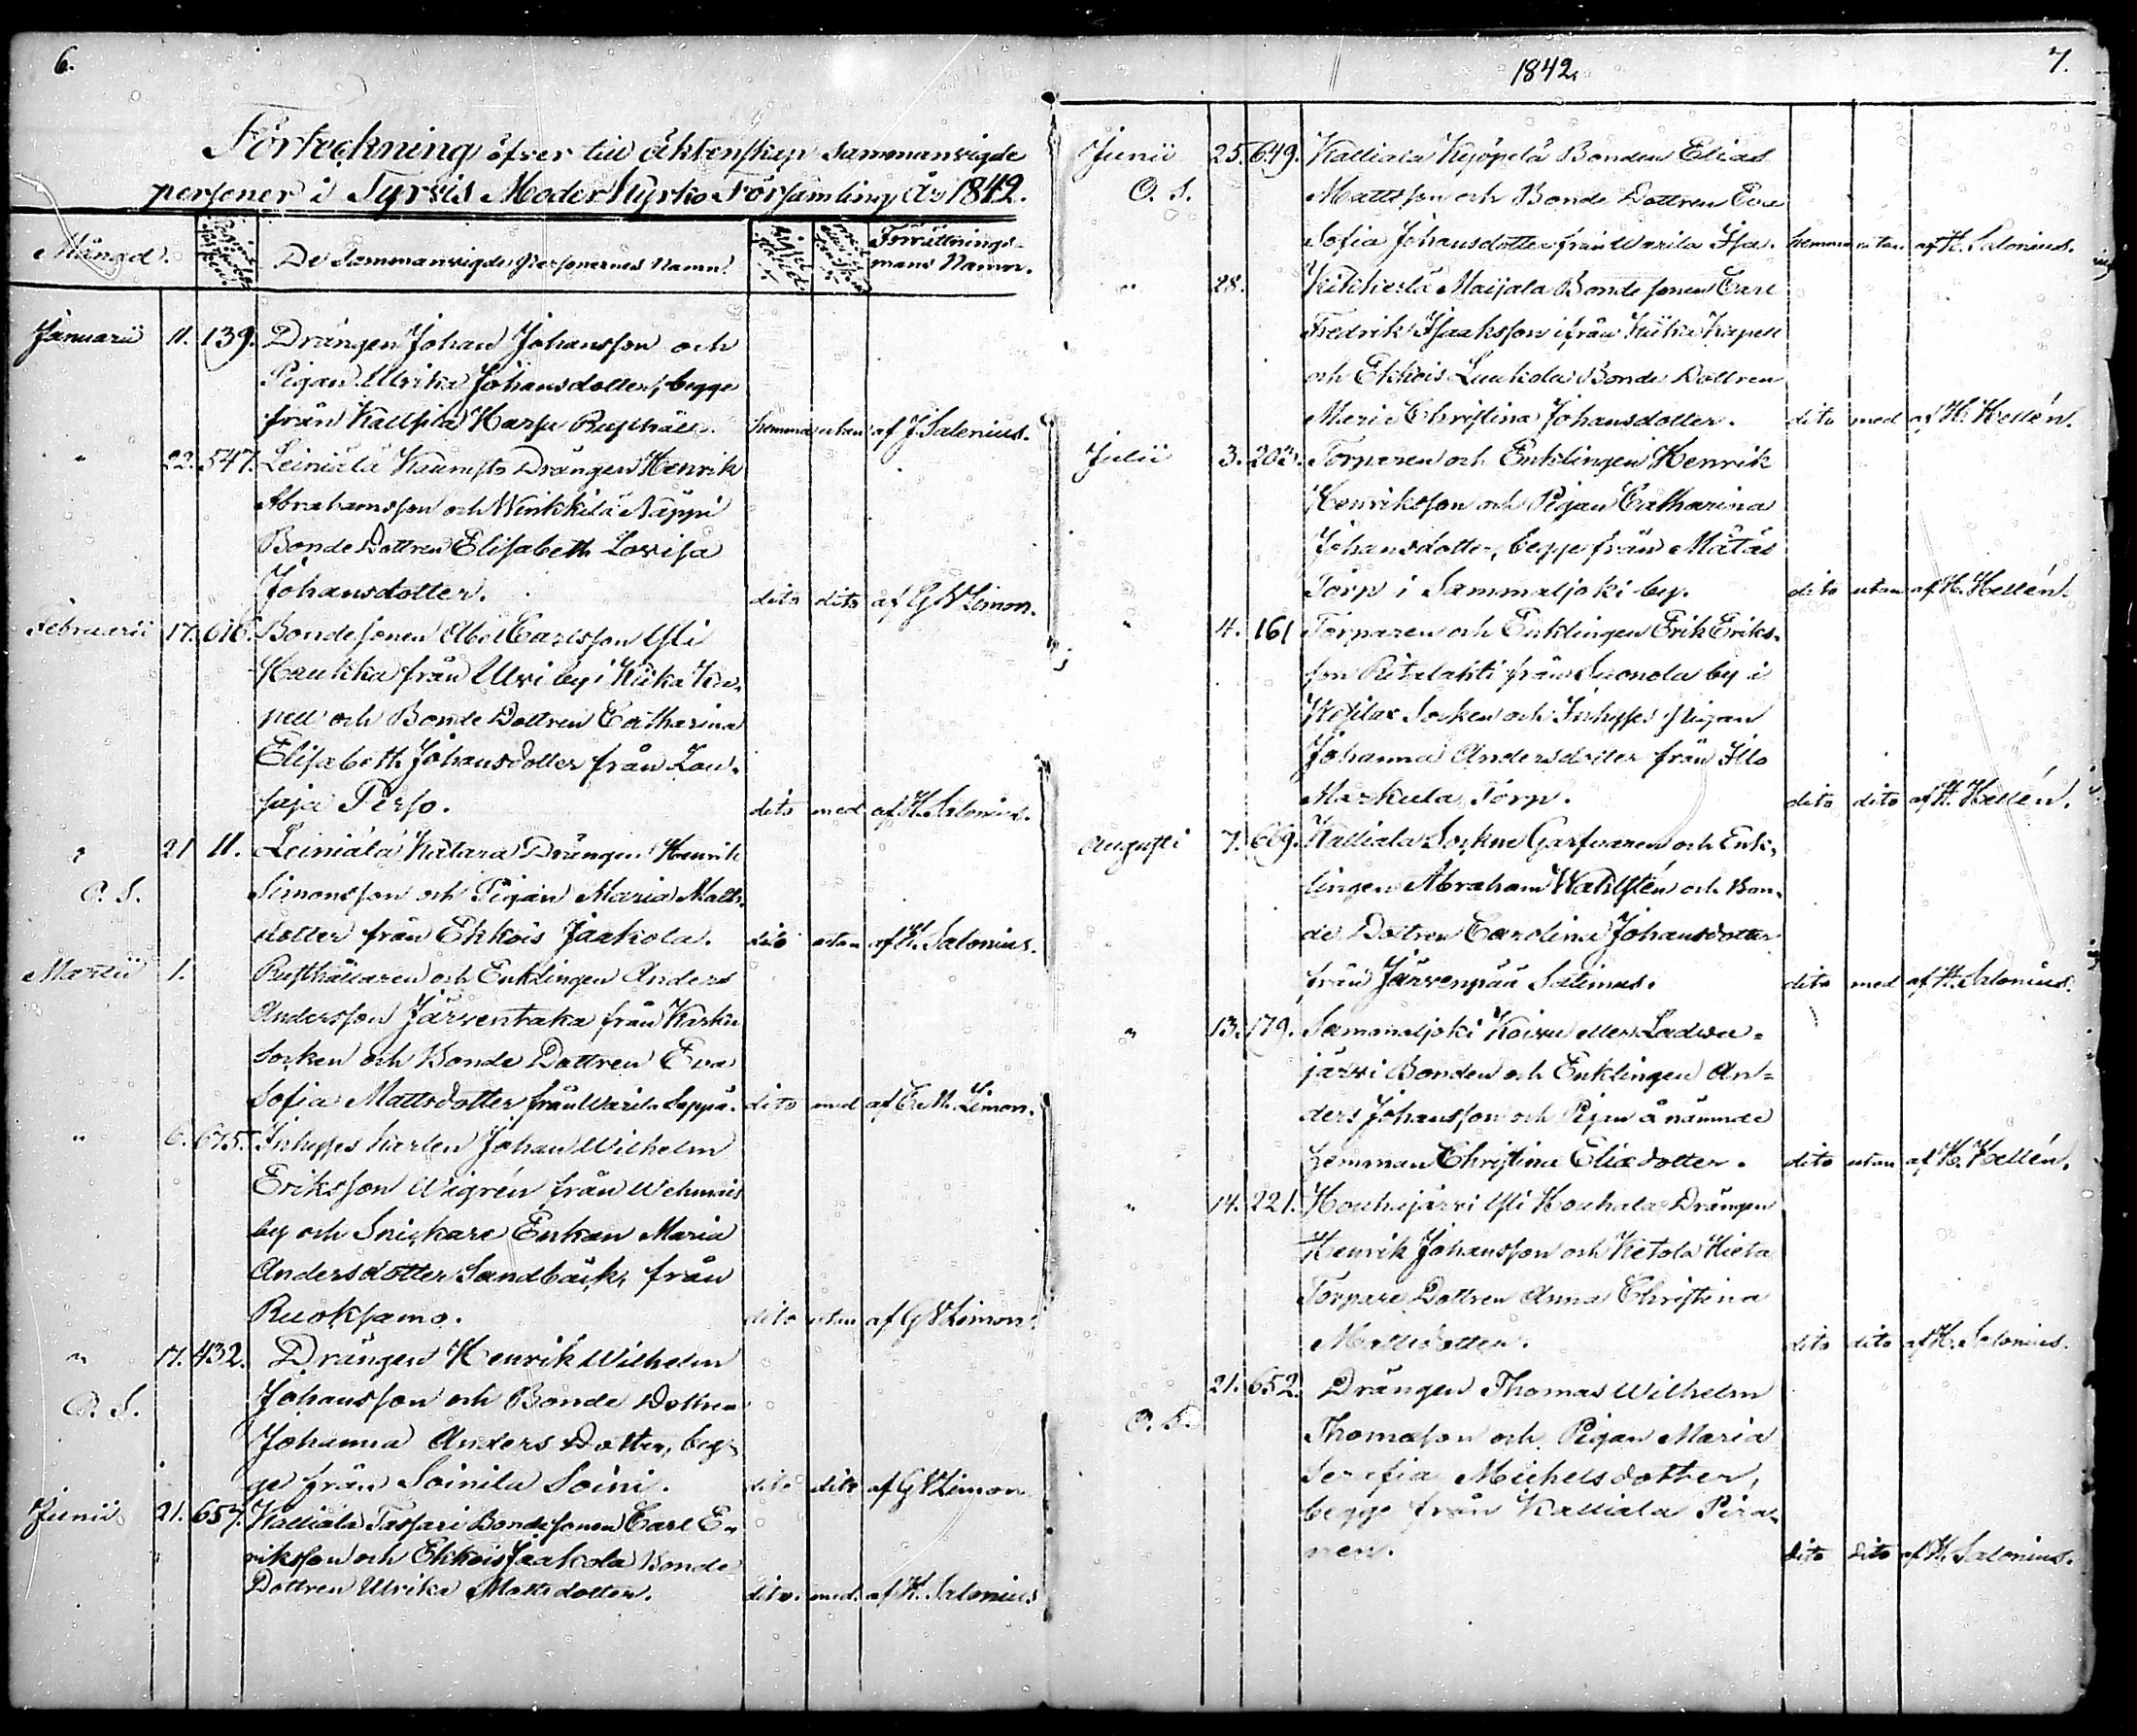 6.
Förteckning öfver till äktenskap sammanvigde
personer i Tyrvis Moder Kyrko Församling År 1842.
Månad.
De Sammanvigde Personernes Namn.
Förrättnings-
mans Namn.
Januarii 11. 139. Drängen Johan Johansson och
Pigan Ulrika Johansdotter, begge
från Kallsila Harju hemma utan af J Salonius.
" 22. 547. Leiniälä Drängen Henrik
Abrahamsson och Winkkilä Näppi
Bonde Dottren Elisabeth Lovisa
Johansdotter. dito dito af G W Limon.
Februarii 17. 616. Bondesonen Abel Carlsson Yli
Haukka från Ulvi by i Kiika Ka-
pell och Bonde Dottren Catharina
Elisabeth Johansdotter från Lou-
saja Perso. dito med af H. Salonius.
" 21 11. Leiniälä Kätara Drängen Henrik
O. S. Simonsson och Pigan Maria Matts-
dotter från Ekkois Jaakola. dito utan af H. Salonius.
Martii 1. Rusthållaren och Enklingen Anders
Andersson Järventaka från Karku
Socken och Bonde Dottren Eva
Sofia Mattsdotter från Warila Seppä. dito med af Limon.
" 6. 675. Inhyses karlen Johan Wilhelm
Eriksson Wigrén från Wehmais
by och Snickare Enkan Maria
Andersdotter Sandbäck, från
Ruoksamo. dito utan af G W Limon.
" 17. 432. Drängen Henrik Wilhelm
O. S. Johansson och Bonde Dottren
Johanna Anders Dotter, beg-
ge från Soinila Soini. dito dito af G W Limon
Junii 21. 657. Kalliala Tassari Bondesonen Carl E-
riksson och Ekkois Jaakola Bonde
Dottren Ulrika Mattsdotter. dito. med. af H. Salonius
1842.
7.
Junii 25. 649. Kalliala Kjöpelä Bonden Elias
O. S. Mattsson och Bonde Dottren Eva
Sofia Johansdotter från Warila Isa. hemma utan af H. Salonius.
" 28. Maijala Bonde sonen Carl
Fredrik Isaaksson ifrån Kiika Kapell
och Ekkois Luukola Bonde Dottren
Maria Christina Johansdotter. dito med af H. Hellén.
Julii 3. 202. Torparen och Enklingen Henrik
Henriksson och Pigan Catharina
Johansdotter, begge från Mätäs
Torp i Sammaljoki by. dito utan af H. Hellén.
" 4. 161 Torparen och Enklingen Erik Eriks-
son Ritalahti från Suonola by i
Wesilax Socken och Inhyses Pigan
Johanna Andersdotter från Illo
Markula Torp. dito dito af H. Hellén.
Augusti 7. 669. Kalliala Sockne Garfvaren och Enk-
lingen Abraham Wahlstén och Bon-
de Dottren Carolina Johansdotter
från Järvenpää Salimus. dito med af H. Salonius.
" 13. 179. Sammaljoki Koivu eller Ladva-
järvi Bonden och Enklingen An-
ders Johansson och Pigan å nämnde
hemman Christina Eliædotter. dito utan af H. Hellén.
" 14. 221. Houhajärvi Yli Houhala Drängen
Henrik Johansson och Ketola Hieta
Torpare Dottren Anna Christina
Mattsdotter. dito dito af H. Salonius.
21. 652. Drängen Thomas Wilhelm
O. S. Thomasson och Pigan Maria
Serafia Michelsdotter,
begge från Kalliala Pira-
nen. dito dito af H. Salonius.